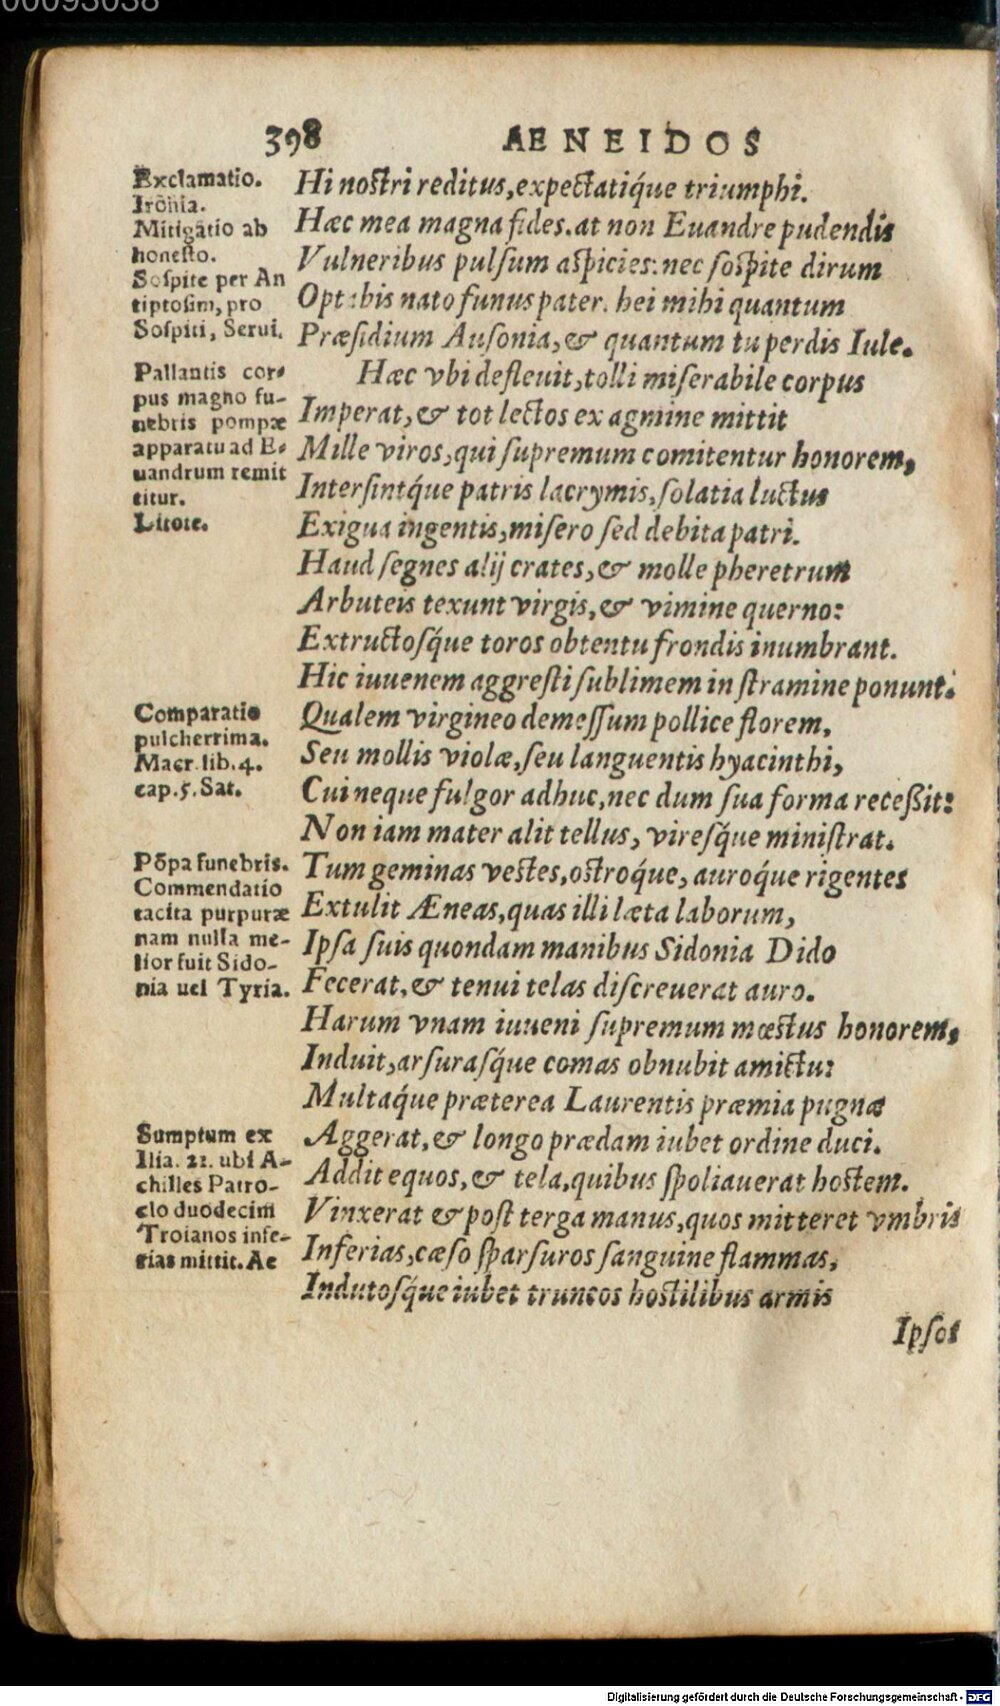 00093038
398 AENEIDOS
Exclamatio.
Irõnia.
Mitigatio ab
honesto.
Sospite per An
tiptosim, pro
Sospiti, Serui.
Hi nostri reditus, expectatiq́ue triumphi.
Hæc mea magna fides. at non Euandre pudendis
Vulneribus pulsum aspicies: nec sospite dirum
Optabis nato funus pater. hei mihi quantum
Præsidium Ausonia, & quantum tu perdis Iule.
Pallantis cor-
pus magno fu-
nebris pompæ
apparatu ad E-
uandrum remit
titur.
Litote.
Hæc vbi defleuit, tolli miserabile corpus
Imperat, & tot lectos ex agmine mittit
Mille viros, qui supremum comitentur honorem,
Intersintq́ue patris lacrymis, solatia luctus
Exigua ingentis, misero sed debita patri.
Haud segnes alij crates, & molle pheretrum
Arbuteis texunt virgis, & vimine querno:
Extructosq́ue toros obtentu frondis inumbrant.
Hic iuuenem aggresti sublimem in stramine ponunt.
Comparatio
pulcherrima.
Macr. lib. 4.
cap. 5. Sat.
Qualem virgineo demessum pollice florem,
Seu mollis violæ, seu languentis hyacinthi,
Cui neque fulgor adhuc, nec dum sua forma receßit:
Non iam mater alit tellus, viresq́ue ministrat.
Põpa funebris.
Commendatio
tacita purpuræ
nam nulla me-
lior fuit Sido-
nia uel Tyria.
Tum geminas vestes, ostroq́ue, auroq́ue rigentes
Extulit Æneas, quas illi læta laborum,
Ipsa suis quondam manibus Sidonia Dido
Fecerat, & tenui telas discreuerat auro.
Harum vnam iuueni supremum mœstus honorem,
Induit, arsurasq́ue comas obnubit amictu:
Multaq́ue præterea Laurentis præmia pugnæ
Sumptum ex
Ilia. 21. ubi A-
chilles Patro-
clo duodecim
Troianos infe-
rias mittit. Ae
Aggerat, & longo prædam iubet ordine duci.
Addit equos, & tela, quibus spoliauerat hostem.
Vinxerat & post terga manus, quos mitteret vmbris
Inferias, cæso sparsuros sanguine flammas,
Indutosq́ue iubet truncos hostilibus armis
Ipsos
Digitalisierung gefördert durch die Deutsche Forschungsgemeinschaft - DFG